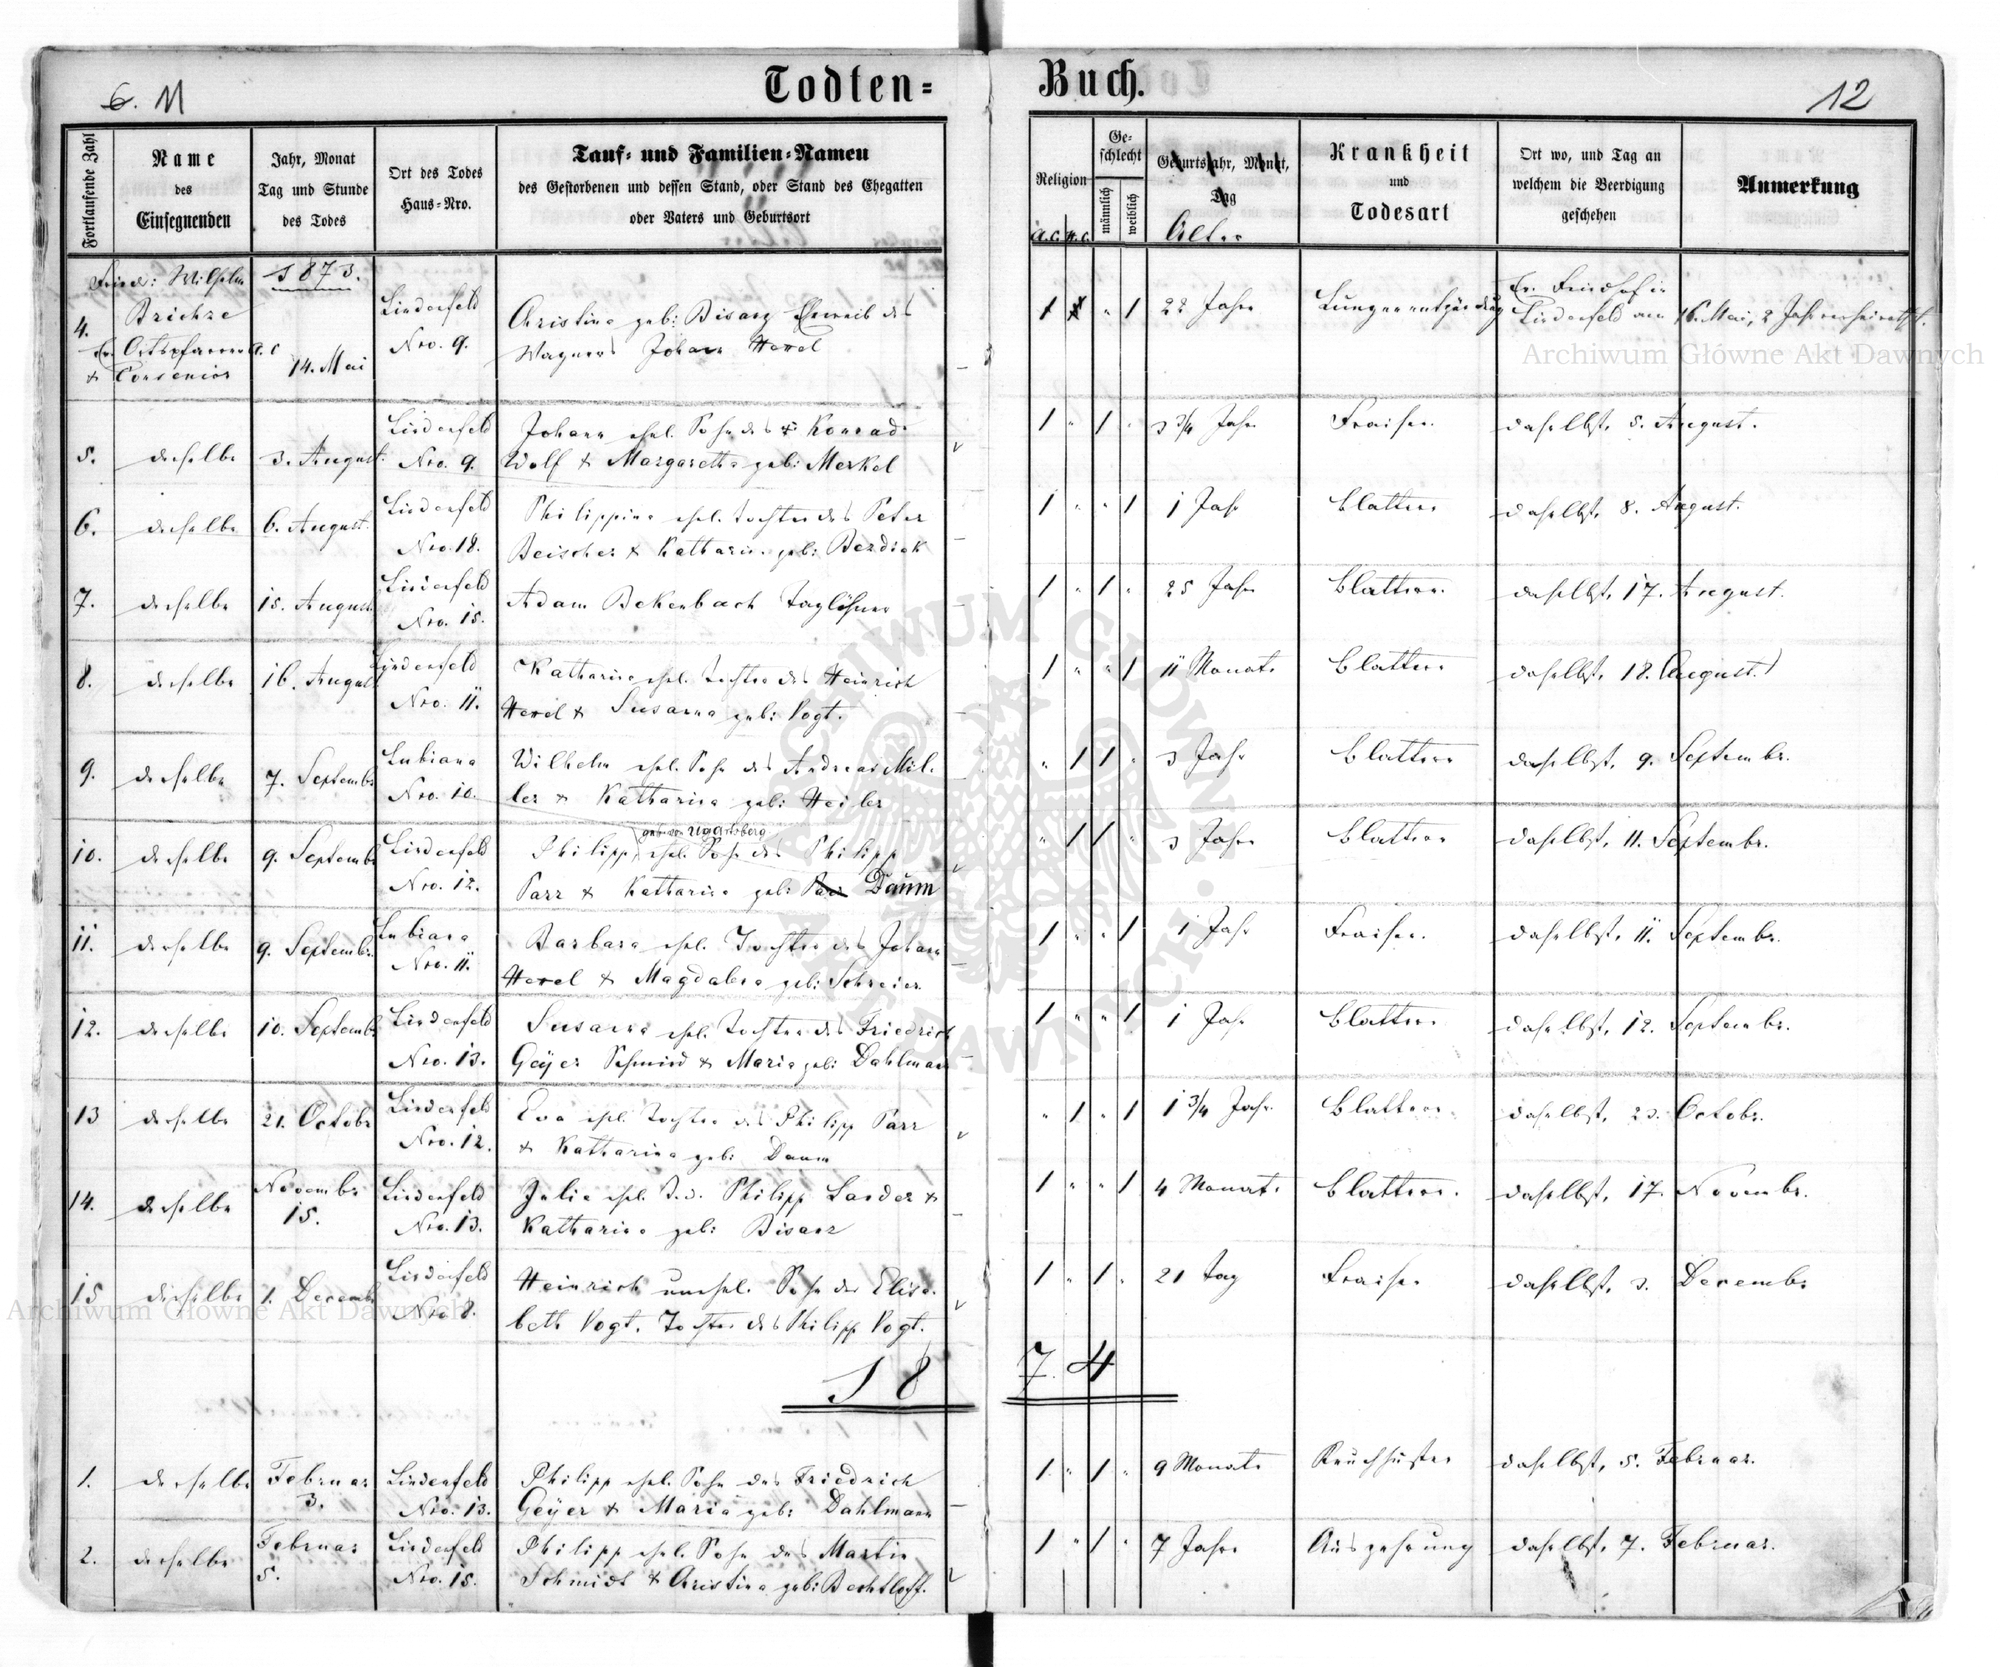 6. 11
Todten=
Buch.
12
Fortlaufende Zahl
Name
des
Einsegnenden
Jahr, Monat
Tag und Stunde
des Todes
Ort des Todes
Haus=Nro.
Tauf= und Familien=Namen
des Gestorbenen und dessen Stand, oder Stand des Ehegatten
oder Vaters und Geburtsort
Religion
A.C. H.C.
Ge=
schlecht
männlich
weiblich
Geburtsjahr, Monat,
Tag
Alter
Krankheit
und
Todesart
Ort wo, und Tag an
welchem die Beerdigung
geschehen
Anmerkung
Fried: Wilhelm
Brichze
4.
Ev. Ortspfarrer A.C
& Consenior
1873.
14. Mai
Lindenfeld
Nro. 9.
Christina geb: Bisanz Eheweib des
Wagners Johann Hexel
1 " 1 22 Jahre Lungenentzündung
Ev. Friedhof in
Lindenfeld am 16. Mai, 2 Jahr verheirathet.
5. derselbe 3. August.
Lindenfeld
Nro. 9.
Johann ehel. Sohn des Konrad
Wolf & Margaretha geb: Merkel
1 " 1 " 3 3/4 Jahr Fraisen. daselbst, 5. August.
6. derselbe 6. August.
Lindenfeld
Nro. 18.
Philippina ehel. Tochter des Peter
Beischer & Katharina geb: Berdick
1 " " 1 1 Jahr Blattern daselbst, 8. August.
7. derselbe 15. August
Lindenfeld
Nro. 15.
Adam Bekenbach Taglöhner
1 " 1 " 25 Jahr Blattern. daselbst, 17. August.
8. derselbe 16. August
Lindenfeld
Nro. 11.
Katharina ehel. Tochter des Heinrich
Hexel & Susanna geb: Vogt.
1 " " 1 11 Monate Blattern daselbst, 18. August.
9. derselbe 7. Septembr
Lubiana
Nro. 10.
Wilhelm ehel. Sohn des Andreas Mil=
ler & Katharina geb: Heiler
" 1 1 " 3 Jahr Blattern daselbst, 9. Septembr.
10. derselbe 9. Septembr
Lindenfeld
Nro. 12.
Philipp, ehel. Sohn des Philipp
Parr & Katharina geb: Parr Daum
" 1 1 " 3 Jahre Blattern daselbst, 11. Septembr.
11. derselbe 9. Septembr.
Lubiana
Nro. 11.
Barbara ehel. Tochter des Johann
Hexel & Magdalena geb: Schreier
1 " " 1 1 Jahr Fraisen. daselbst, 11. Septembr.
12. derselbe 10. Septembr
Lindenfeld
Nro. 13.
Susanna ehel. Tochter des Friedrich
Geÿer Schmied & Maria geb: Dahlmann
1 " " 1 1 Jahr Blattern daselbst, 12. Septembr.
13 derselbe 21. Octobr
Lindenfeld
Nro. 12.
Eva ehel. Tochter des Philipp Parr
& Katharina geb: Daum
" 1 " 1 1 3/4 Jahr Blattern daselbst, 23. Octobr.
14. derselbe
Novembr
15.
Lindenfeld
Nro. 13.
Julie ehel. T. d. Philipp Lander &
Katharina geb: Bisanz
1 " " 1 4 Monate Blattern. daselbst, 17. Novembr.
15 derselbe 1. Decembr
Lindenfeld
Nro 8.
Heinrich unehel. Sohn der Elisa=
beth Vogt, Tochter des Philipp Vogt.
1 " 1 " 21 Tag Fraisen daselbst, 3. Decembr
18
7. 4
1. derselbe
Februar
3.
Lindenfeld
Nro. 13.
Philipp ehel. Sohn des Friedrich
Geÿer & Maria geb: Dahlmann
1 " 1 " 9 Monate Keuchhusten daselbst, 5. Februar.
2. derselbe
Februar
5.
Lindenfeld
Nro. 15.
Philipp ehel. Sohn des Martin
Schmidt & Christina geb: Bechtloff.
1 " 1 " 7 Jahre Auszehrung daselbst, 7. Februar.
Archiwum Główne Akt Dawnych
Archiwum Główne Akt Dawnych
ARCHIWUM GŁÓWNE AKT DAWNYCH